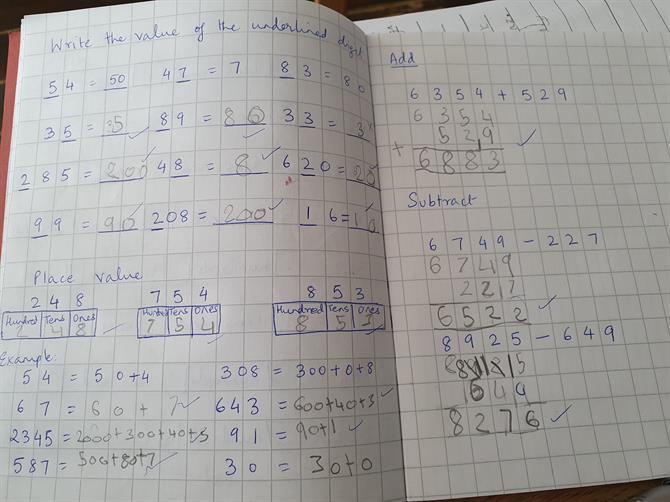 Write the value of the underlined digit
54 = 50 47 = 7 83 = 80
35 = 5 89 = 80 33 = 3
285 = 200 48 = 8 620 = 20
99 = 90 208 = 200 16 = 10
Place value
248 754 853
Hundred Tens Ones Hundred Tens Ones Hundred Tens Ones
2 4 8 7 5 4 8 5 3
Example:
54 = 50+4 308 = 300+0+8
67 = 60 + 7 643 = 600+40+3
2345 = 2000+300+40+5 91 = 90+1
587 = 500+80+7 30 = 30+0
Add
6354 + 529
6354
+ 529
6883
Subtract
6749 - 227
6749
227
6522
8925 - 649
8276